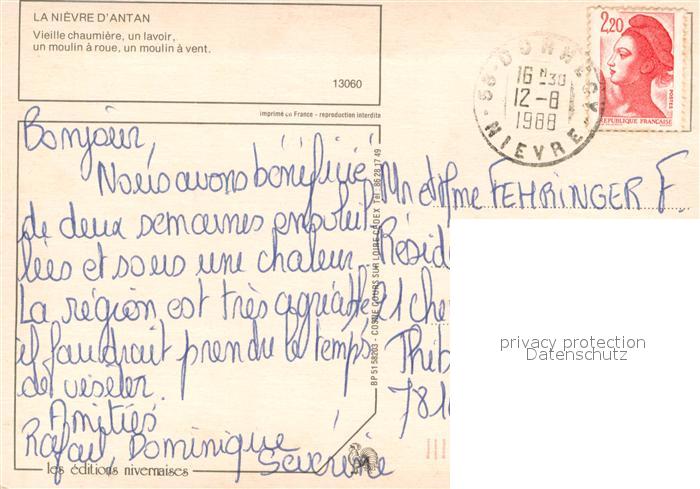 LA NIÈVRE D'ANTAN
Vieille chaumière, un lavoir,
un moulin à roue, un moulin à vent.
13060
imprimé en France - reproduction interdite
2,20
POSTES
REPUBLIQUE FRANÇAISE
58-DONZY
16 H30
12-8
1988
NIEVRE
Bonjour,
Nous avons bénéficié
de deux semaines ensoleil
lées et sous une chaleur.
La région est très agréable
il faudrait prendre le temps
de visiter.
Amitiés
Rafael, Dominique
Séverine
Mr et Mme FEHRINGER F.
Résid
21 che
Thib
781
BP 51 58203 - COSNE COURS SUR LOIRE CEDEX Tél. 86 28 17 49
les éditions nivernaises
privacy protection
Datenschutz